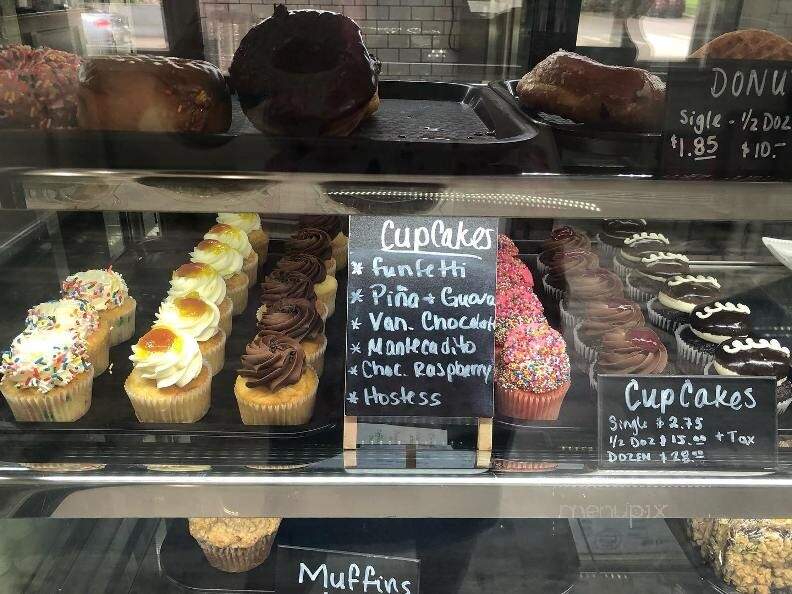 DONU
Sigle - 1/2 Doz
$1.85 $10.-
CupCakes
* funfetti
* Piña + Guava
* Van. Chocolat
* Mantecadito
* Choc. Raspberry
* Hostess
CupCakes
Single $2.75
1/2 Doz $15.00 + Tax
DOZEN $28.00
menupix
Muffins